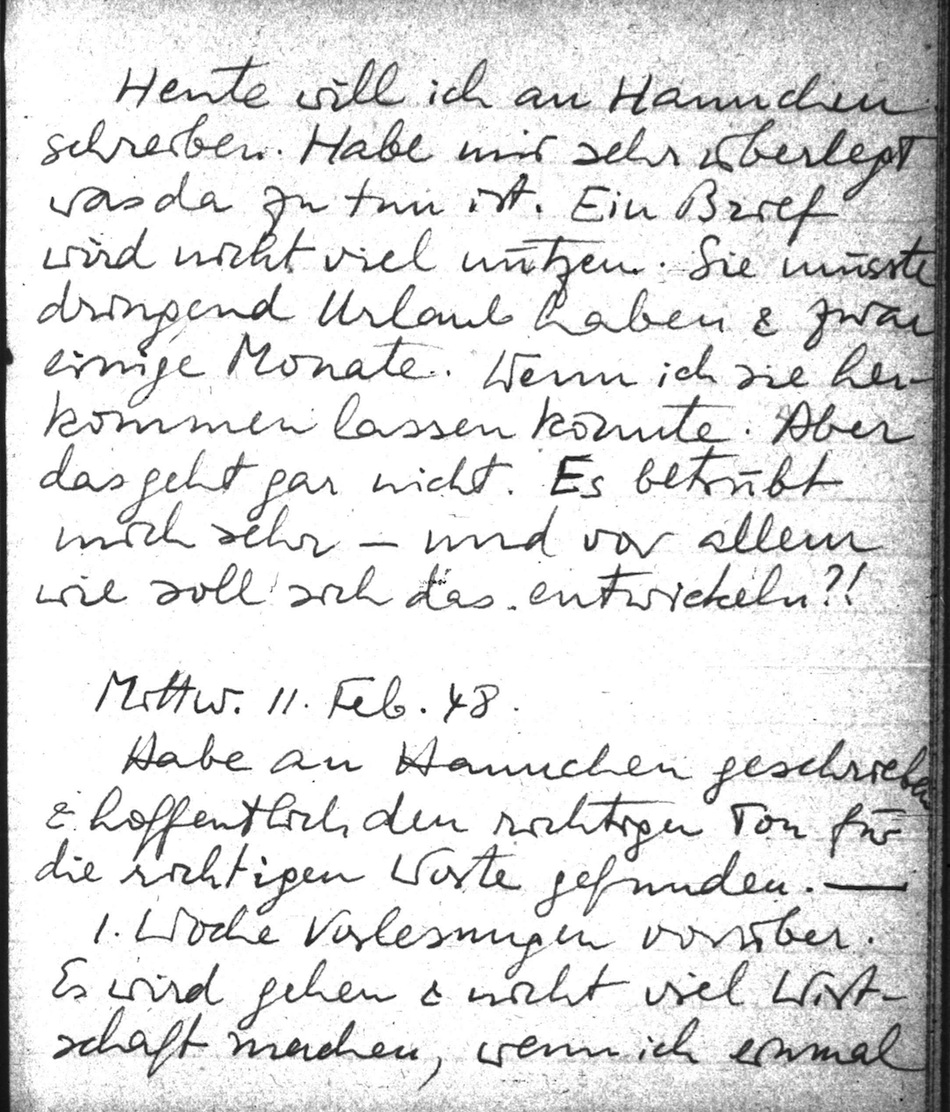 Heute will ich an Hannchen
schreiben. Habe mir sehr überlegt
was da zu tun ist. Ein Brief
wird nicht viel nützen. Sie müsste
dringend Urlaub haben & zwar
einige Monate. Wenn ich sie her-
kommen lassen könnte. Aber
das geht gar nicht. Es betrübt
mich sehr — und vor allem
wie soll sich das entwickeln?!
Mittw. 11. Feb. 48.
Habe an Hannchen geschrieben
& hoffentlich den richtigen Ton für
die richtigen Worte gefunden. —
1. Woche Vorlesungen vorüber.
Es wird gehen & nicht viel Wirt-
schaft machen, wenn ich einmal